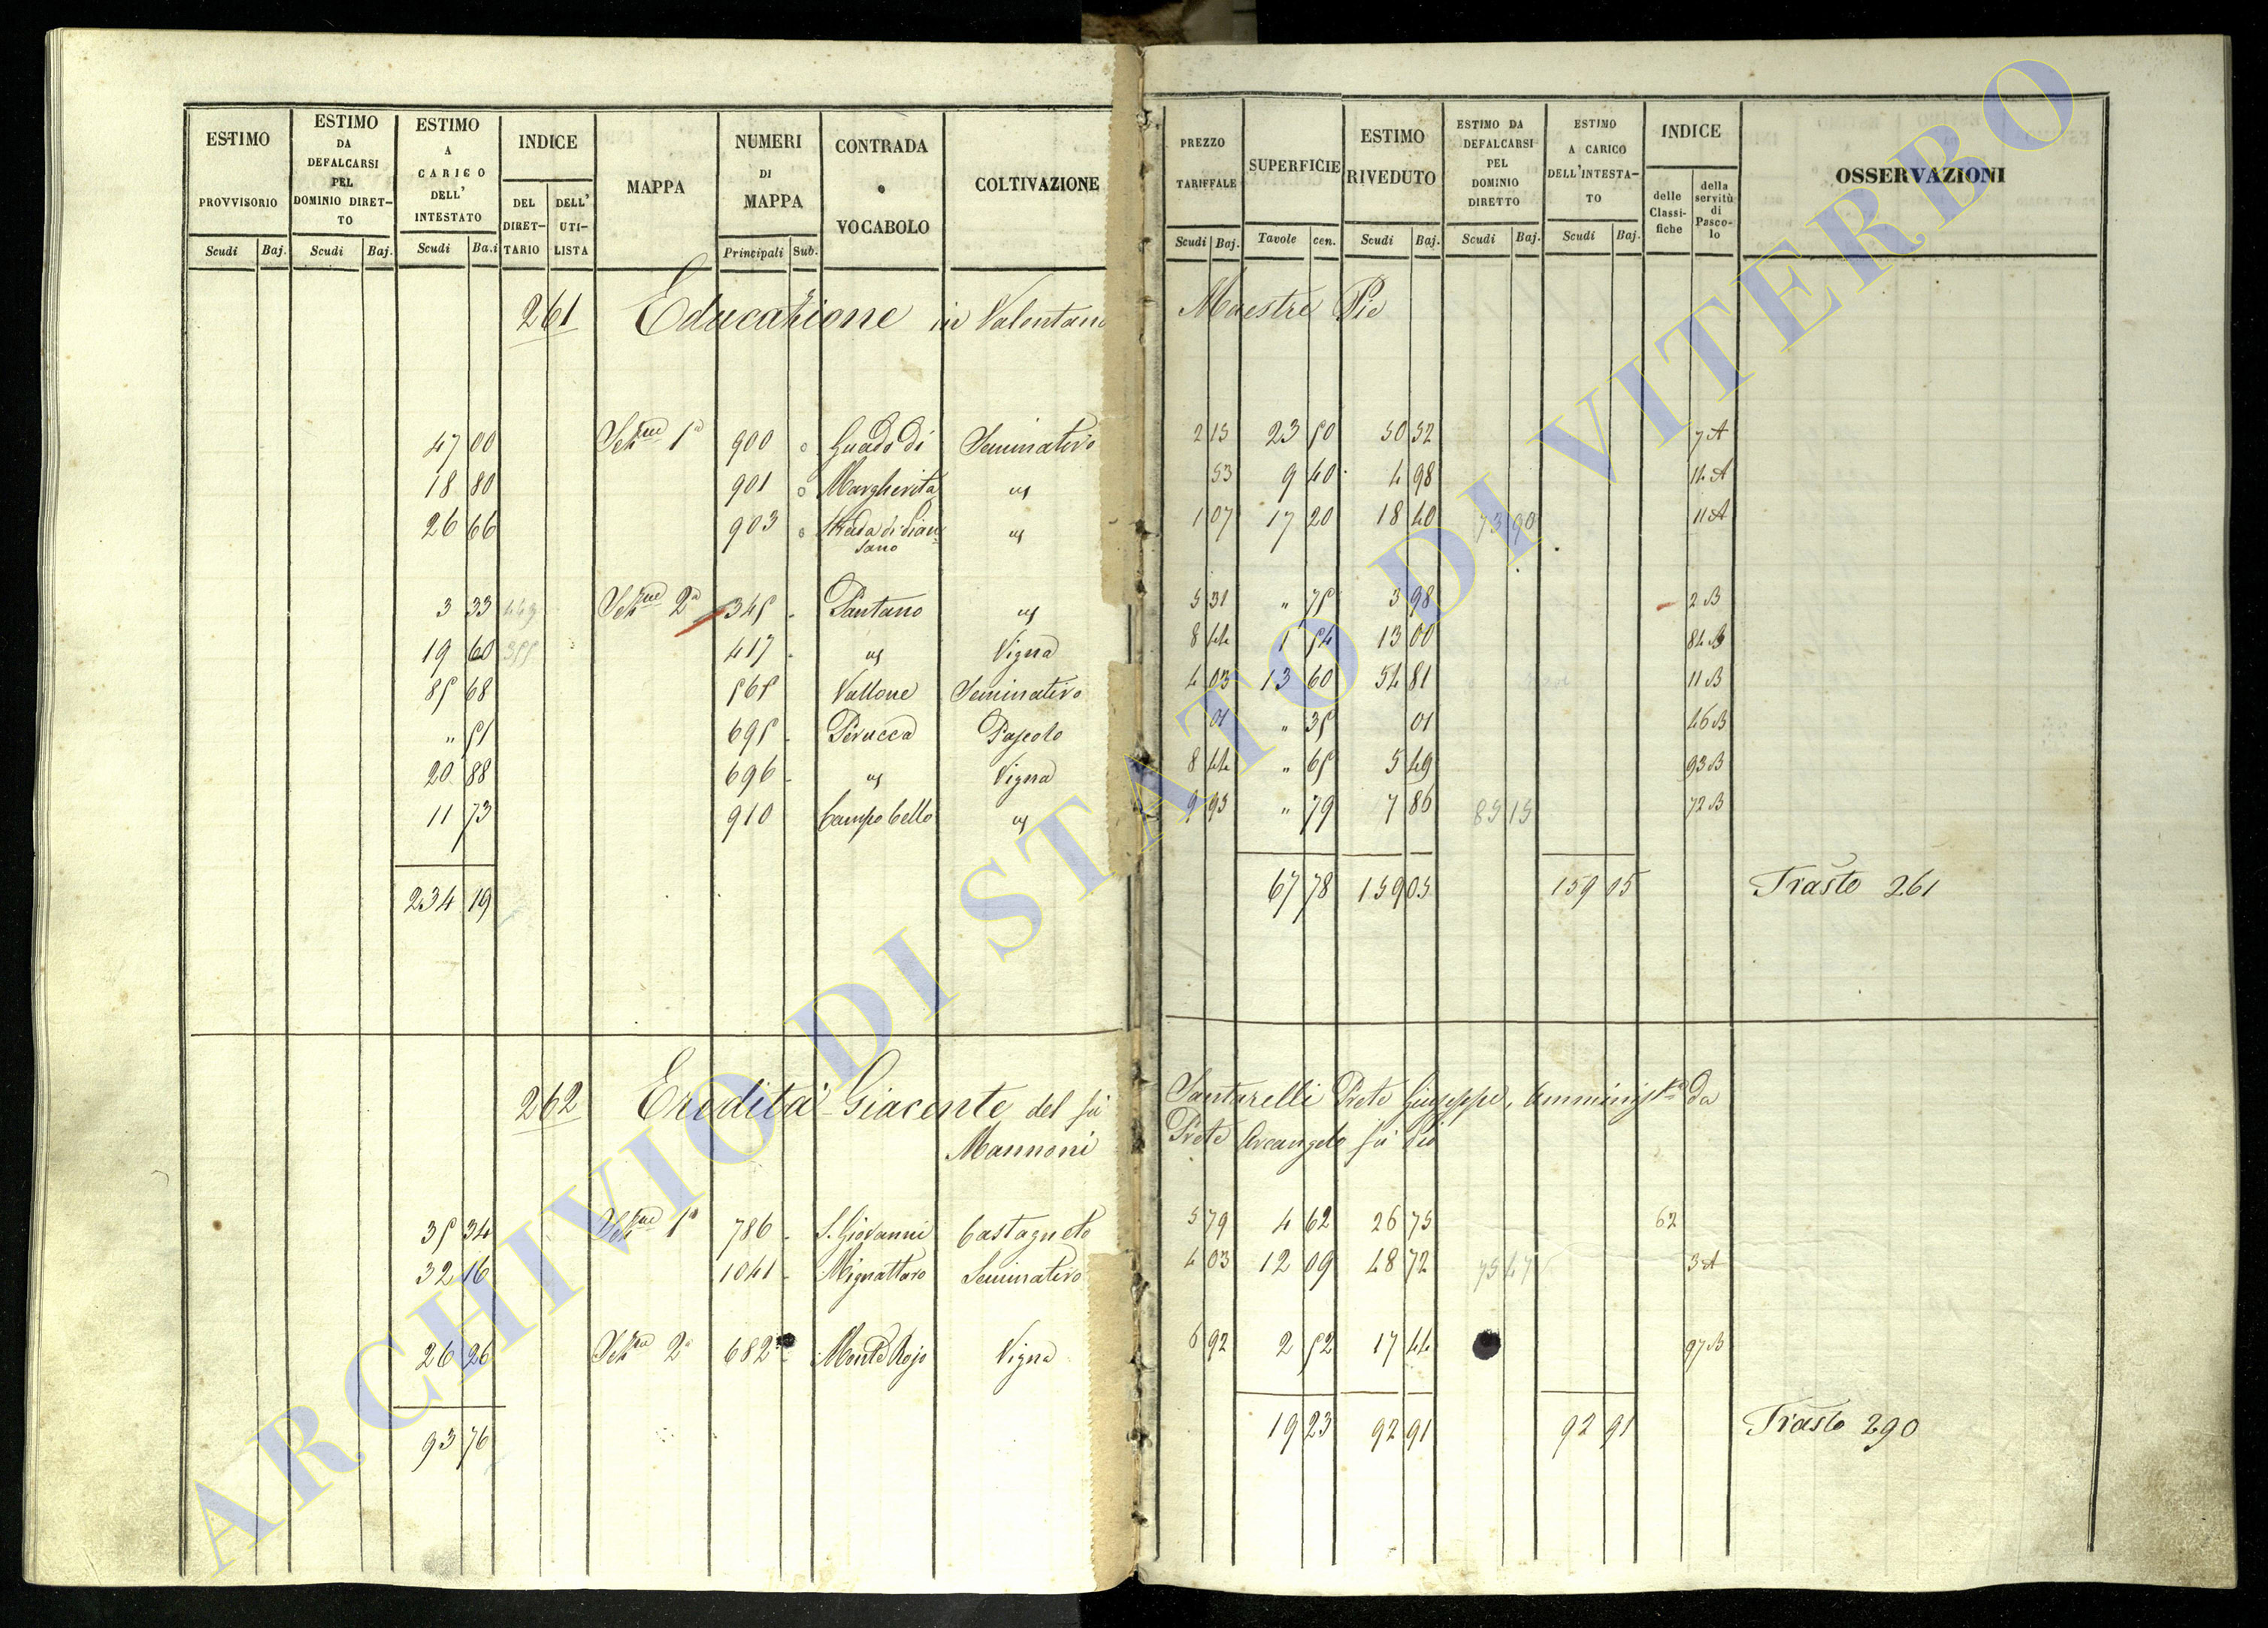 ESTIMO PROVVISORIO Scudi Baj.
ESTIMO DA DEFALCARSI PEL DOMINIO DIRET-TO Scudi Baj.
ESTIMO A CARICO DELL' INTESTATO Scudi Ba.i
INDICE DEL DIRET-TARIO DELL' UTI-LISTA
MAPPA
NUMERI DI MAPPA Principali Sub.
CONTRADA o VOCABOLO
COLTIVAZIONE
PREZZO TARIFFALE Scudi Baj.
SUPERFICIE Tavole cen.
ESTIMO RIVEDUTO Scudi Baj.
ESTIMO DA DEFALCARSI PEL DOMINIO DIRETTO Scudi Baj.
ESTIMO A CARICO DELL'INTESTA-TO Scudi Baj.
INDICE delle Classi-fiche della servitù di Pasco-lo
OSSERVAZIONI
261 Educazione in Valentano Maestre Pie
47 00 Sez.ne 1a 900 Guado di Seminativo 2 15 23 50 50 52 7 A
18 80 901 Margherita 53 9 40 4 98 14 A
26 66 903 Strada di Pian= 1 07 17 20 18 40 73 90 11 A
sano
3 33 449 Sez.ne 2a 345 Pantano 5 31 " 75 3 98 2 B
19 60 355 417 Vigna 8 44 1 54 13 00 84 B
85 68 565 Vallone Seminativo 4 03 13 60 54 81 11 B
" 51 695 Perucca Pascolo 01 " 35 01 46 B
20 88 696 Vigna 8 44 " 65 5 49 93 B
11 73 910 Campo Cello 9 95 " 79 7 86 85 15 72 B
234 19 67 78 159 05 159 05 Trasto 261
262 Eredità Giacente del fù Santarelli Prete Giuseppe, Amministta da
Mannoni Prete Arcangelo fù Pio
35 34 Sez.ne 1a 786 S. Giovanni Castagneto 5 79 4 62 26 75 62
32 16 1041 Mignattaro Seminativo 4 03 12 09 48 72 75 47 3 A
26 26 Sez.ne 2a 682 Monte Rojo Vigna 6 92 2 52 17 44 97 B
93 76 19 23 92 91 92 91 Trasto 290
ARCHIVIO DI STATO DI VITERBO